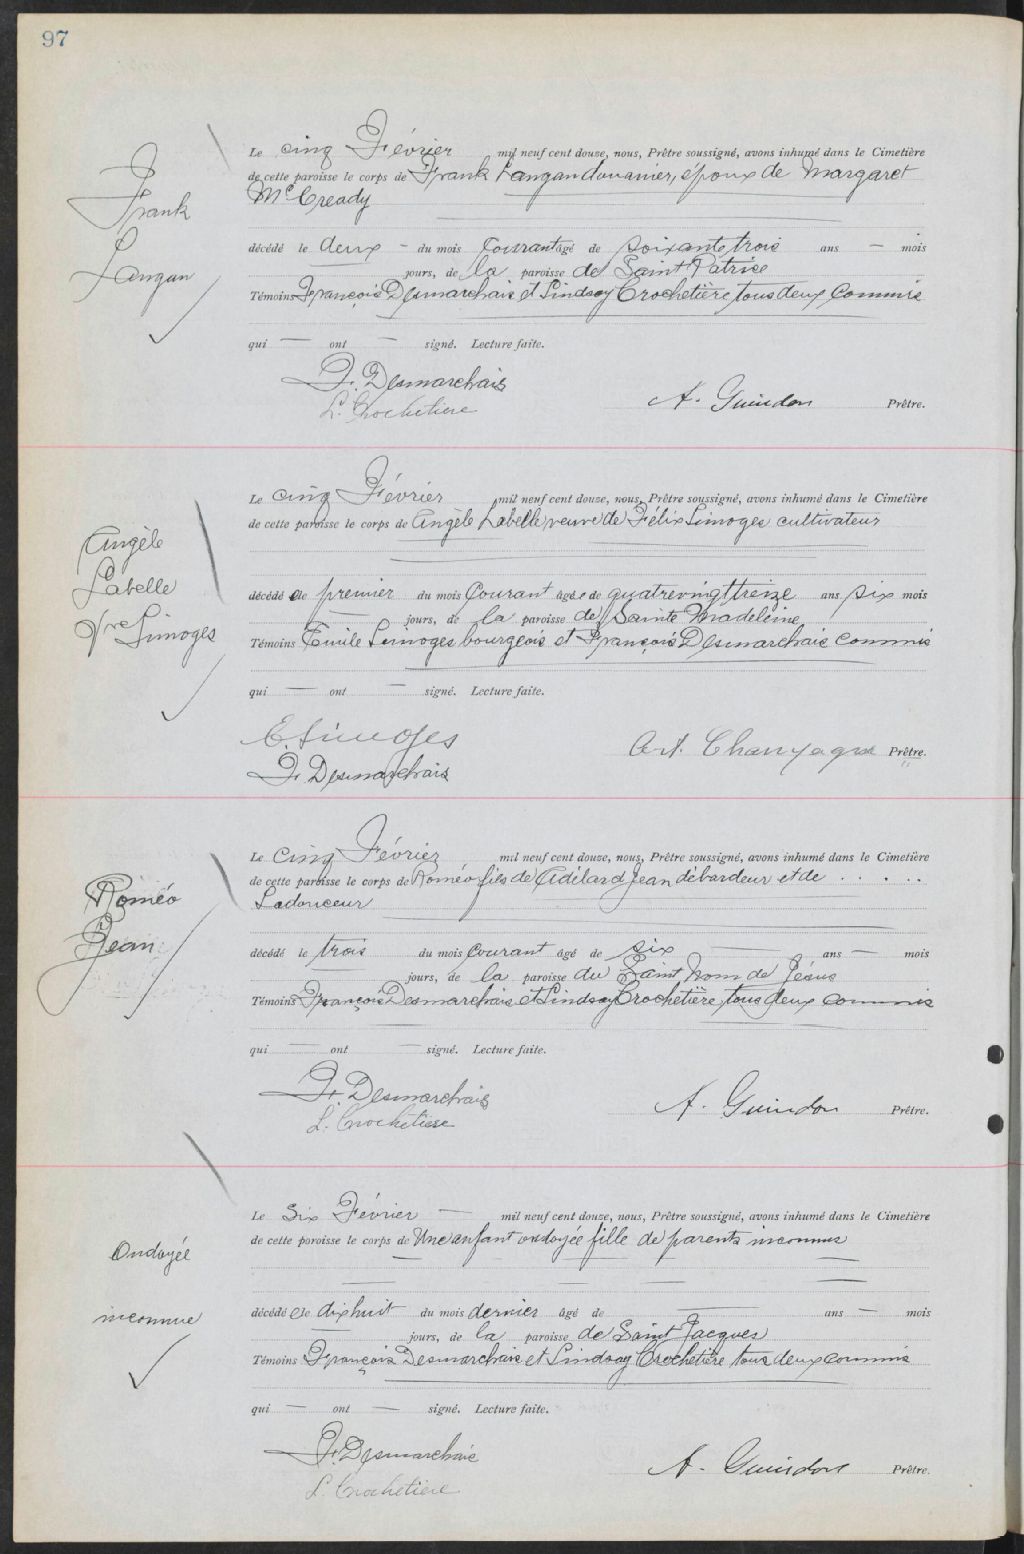 97
Frank
Langan
Le cinq Février mil neuf cent douze, nous, Prêtre soussigné, avons inhumé dans le Cimetière
de cette paroisse le corps de Frank Langan douanier, époux de Margaret
McCready
décédé le deux - du mois Courant âgé de soixante trois ans - mois
jours, de la paroisse de Saint Patrice
Témoins François Desmarchais et Lindsay Crochetière, tous deux Commis
qui - ont - signé. Lecture faite.
F. Desmarchais
L. Crochetiere
A. Guindon Prêtre.
Angèle
Labelle
Vve Limoges
Le cinq Février mil neuf cent douze, nous, Prêtre soussigné, avons inhumé dans le Cimetière
de cette paroisse le corps de Angèle Labelle, veuve de Félix Limoges cultivateur
décédée le premier du mois Courant âgée de quatrevingt treize ans six mois
jours, de la paroisse de Sainte Madeleine
Témoins Emile Limoges bourgeois et François Desmarchais Commis
qui - ont - signé. Lecture faite.
E. Limoges
F. Desmarchais
Art. Champagne Prêtre.
Roméo
Jean
Le cinq Février mil neuf cent douze, nous, Prêtre soussigné, avons inhumé dans le Cimetière
de cette paroisse le corps de Roméo fils de Adélard Jean débardeur et de . . . . .
Ladouceur
décédé le trois du mois courant âgé de six ans - mois
jours, de la paroisse du Saint Nom de Jésus
Témoins François Desmarchais et Lindsay Crochetière, tous deux commis
qui - ont - signé. Lecture faite.
F. Desmarchais
L. Crochetiere
A. Guindon Prêtre.
Ondoyée
inconnue
Le six Février - mil neuf cent douze, nous, Prêtre soussigné, avons inhumé dans le Cimetière
de cette paroisse le corps de Une enfant ondoyée fille de parents inconnus
décédée le dixhuit du mois dernier âgé de ans - mois
jours, de la paroisse de Saint Jacques
Témoins François Desmarchais et Lindsay Crochetière tous deux commis
qui - ont - signé. Lecture faite.
F. Desmarchais
L. Crochetiere
A. Guindon Prêtre.